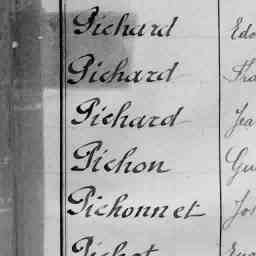 Pichard Edo
Pichard Fra
Pichard Jea
Pichon Gu
Pichonnet Jo
Pichot